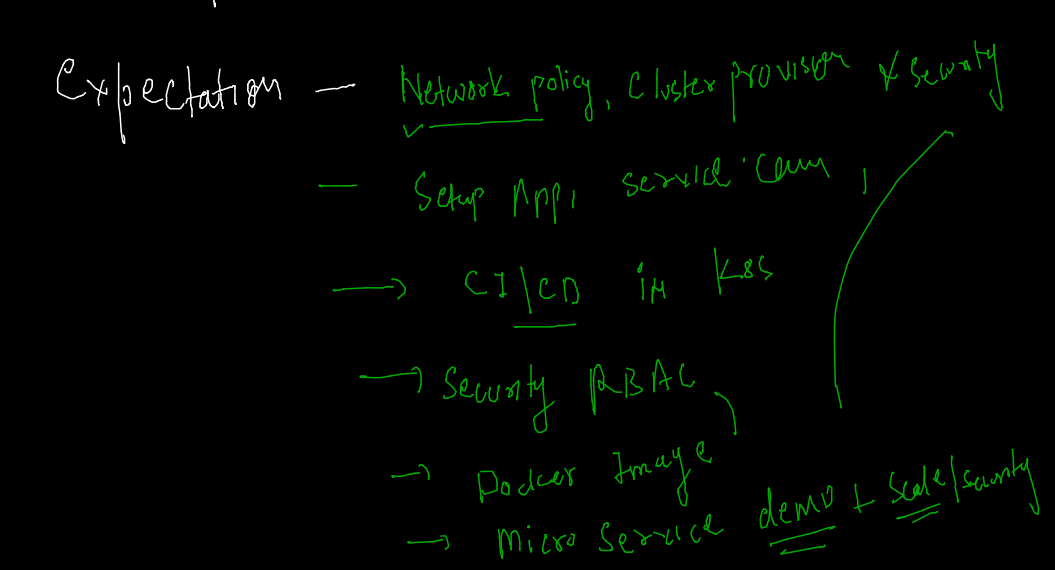 Expectation — Network policy, Cluster provision & security
— Setup App, service comm,
→ CI/CD in K8s
→ Security RBAC
→ Docker Image
→ Micro Service demo + Scale/security